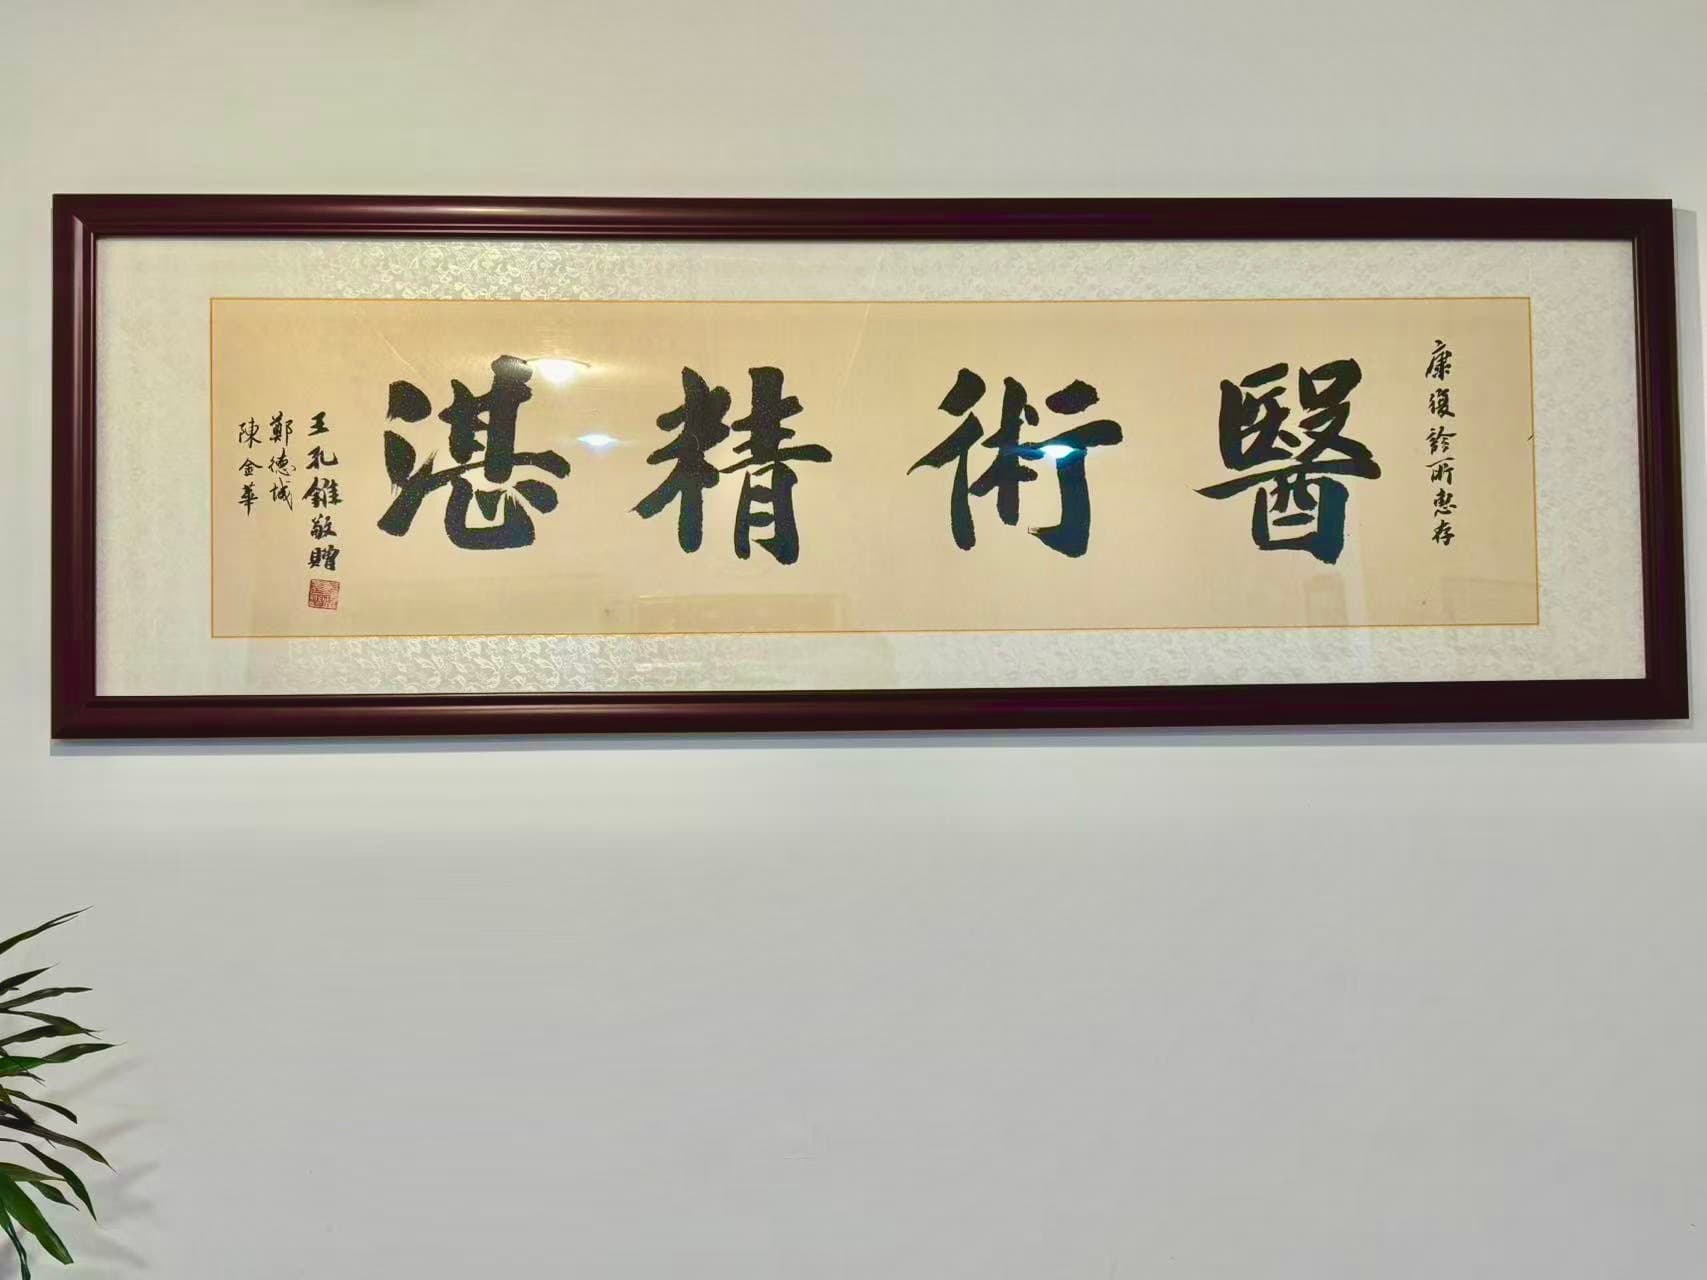 康復診所惠存
醫術精湛
王孔錐敬贈
鄭德城
陳金華